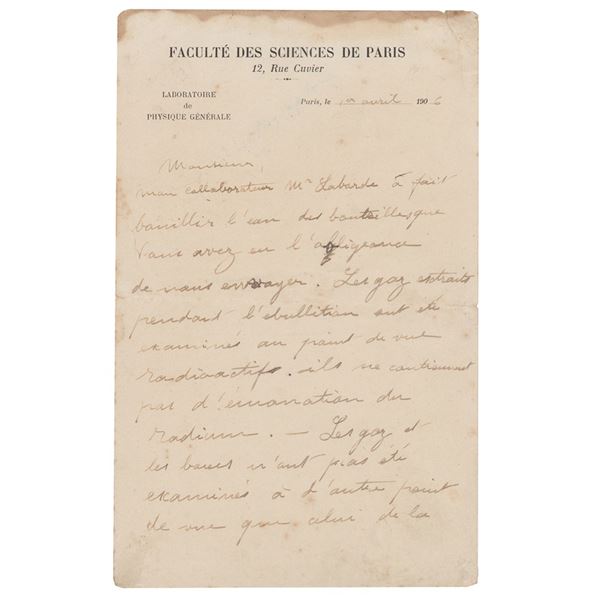 FACULTÉ DES SCIENCES DE PARIS
12, Rue Cuvier
LABORATOIRE
de
PHYSIQUE GÉNÉRALE
Paris, le 1er avril 1906
Monsieur,
mon collaborateur Mr Labarde à fait
bouillir l'eau des bouteilles que
Vous avez eu l'obligeance
de nous envoyer. Les gaz extraits
pendant l'ébullition ont été
examinés au point de vue
radioactifs. ils ne contiennent
pas d'émanation du
radium. — Les gaz et
les boues n'ont pas été
examinés à d'autre point
de vue que celui de la